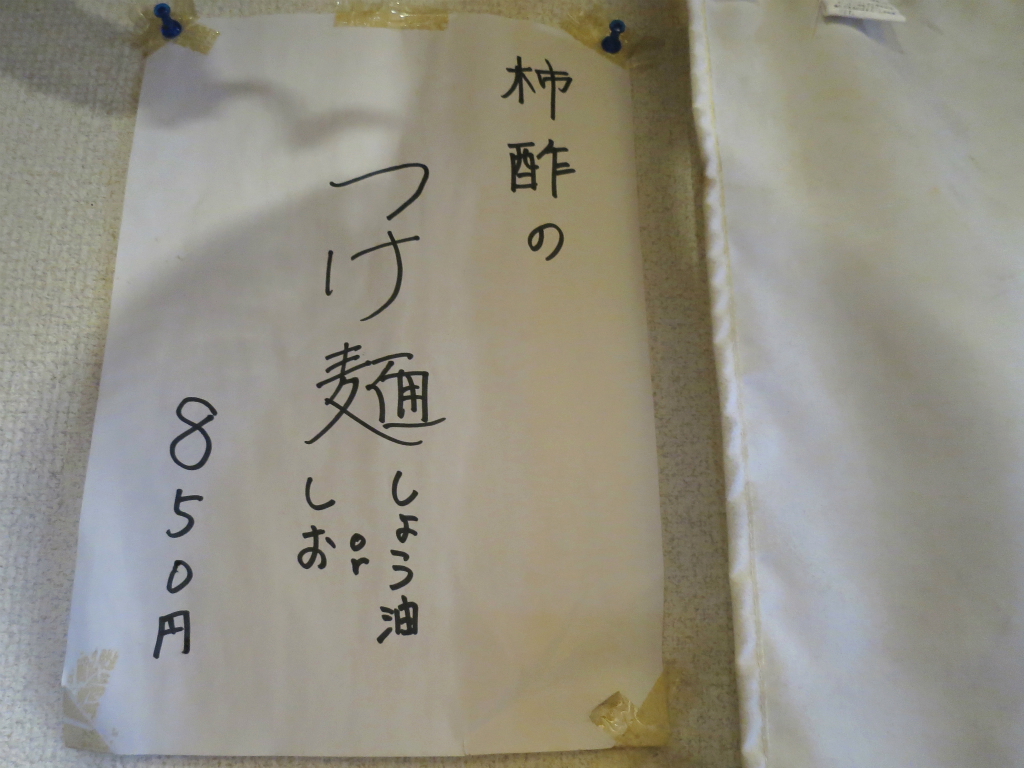 柿酢の
つけ麺
しょう油
or
しお
850円